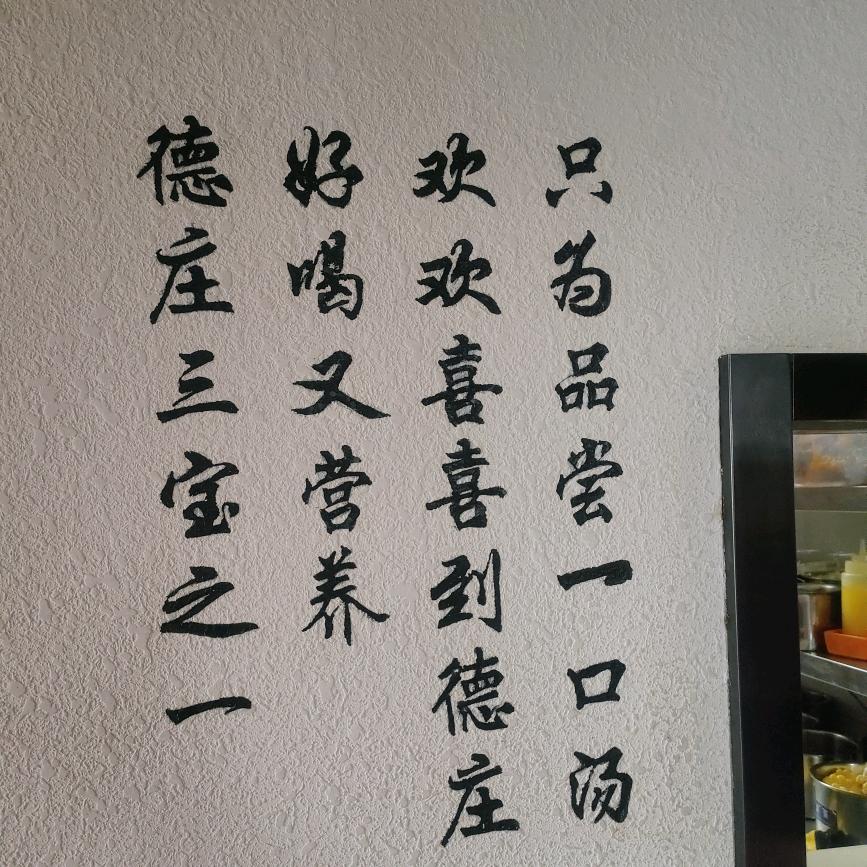 只为品尝一口汤
欢欢喜喜到德庄
好喝又营养
德庄三宝之一